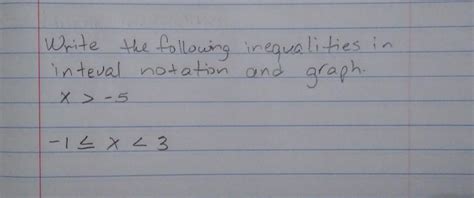 Write the following inequalities in
inteval notation and graph.
x > -5
-1 ≤ x < 3